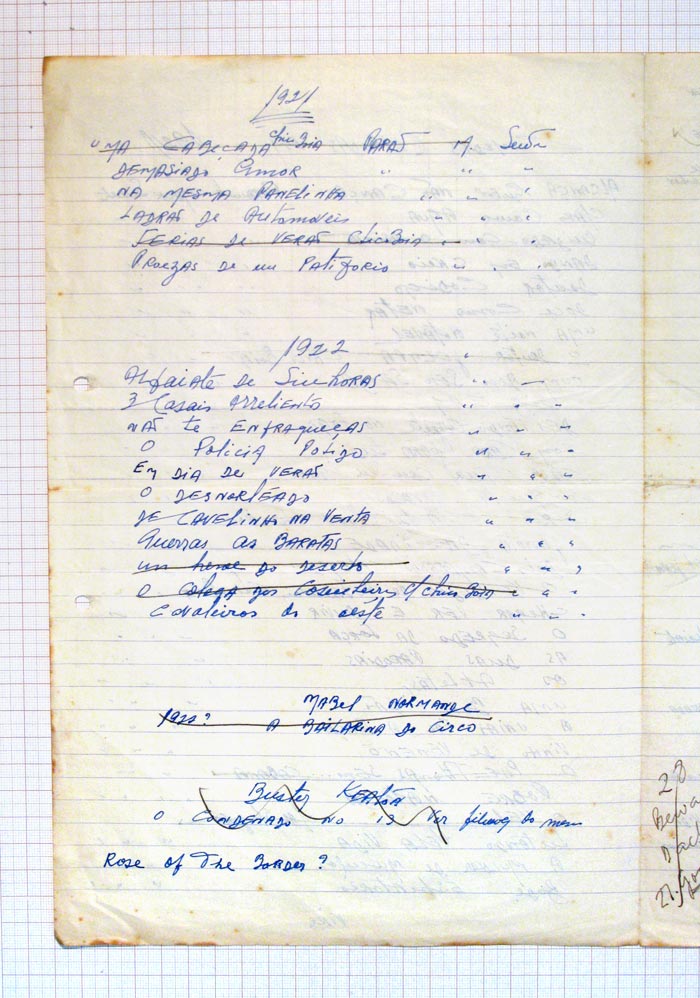 1921
"MA CABEÇADA chico Boia PARAÓ M. Senn
DEMASIADO Amor " " "
NA MESMA PANELINHA " " "
LADRÃO DE Automoveis " " "
FERIAS DE VERÃO Chico Boia "
PROEZAS DE um PATIFORIO " " "
1922
Alfaiate DE SinhoRAS " —
3 Casais Arreliento " " "
NÃO te ENFRAQUEÇAS " " "
O POLICIA " " "
EM DIA DE VERÃO " " "
O DESNORTEADO " " "
DE CAVELINHO NA VENTA " " "
Guerras as BARATAS " " "
um heroe do deserto " " "
O colega dos Cosinheiros c/ chico Boia " "
CavAleiros do oéste " " "
1922? MABEL NORMANDE
A BAILARINA do CIRCO
Buster KEATON
O CONDENADO no 13 Ver do mesmo
Rose of The BORDER?
28
21